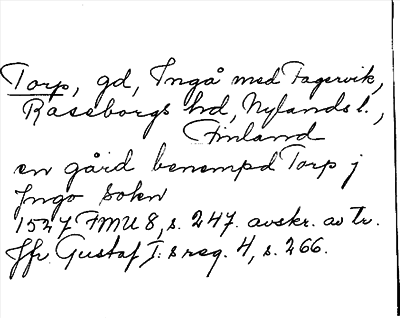 Torp, gd, Ingå med Fagervik,
Raseborgs hd, Nylands l.,
Finland
en gård benempd Torp j
Jngo Sokn
1527 FMU 8, s. 247. avskr. av tr.
Jfr Gustaf I:s reg. 4, s. 266.